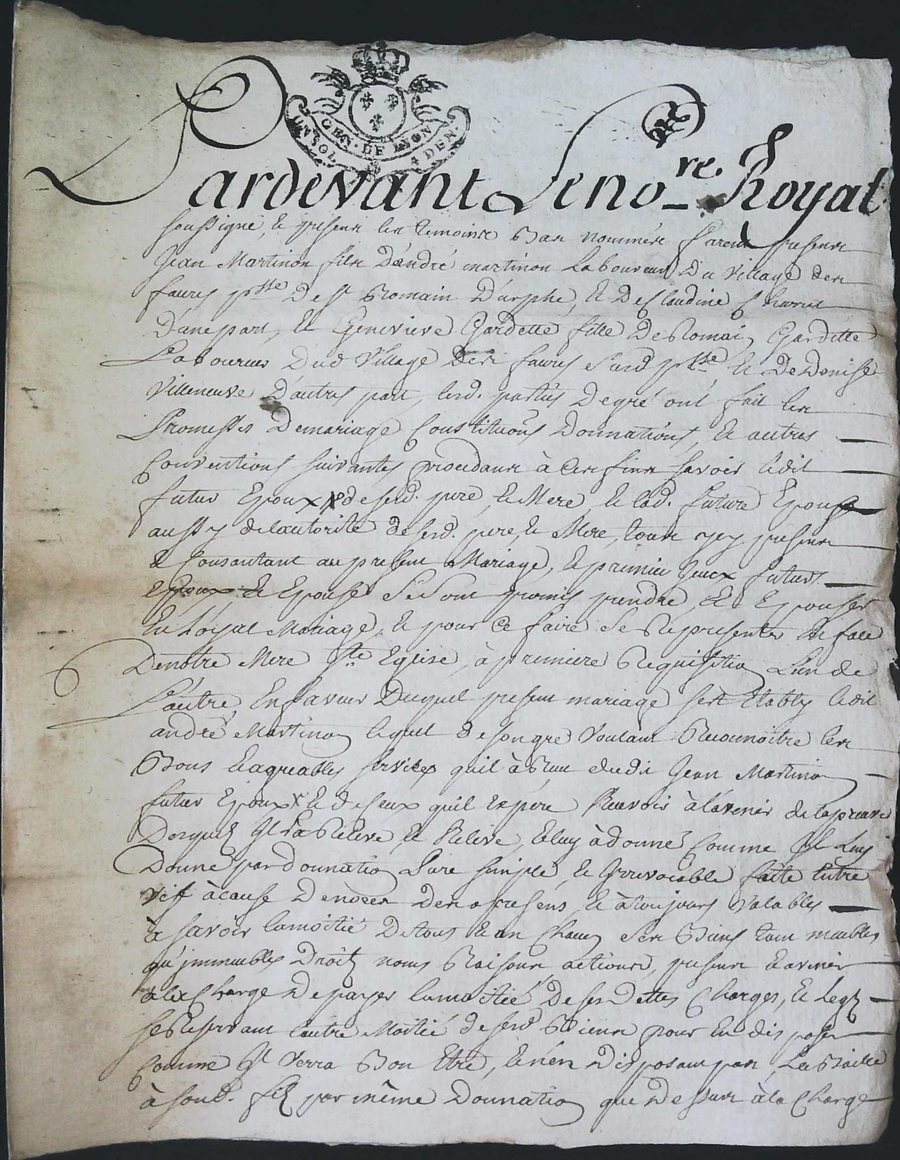 GEN. DE LYON
UN SOL 4 DEN.
Pardevant Le no.re Royal
soussigné, et presens les temoins Bas nommés furent presens
Jean Martinon fils D'andré martinon Laboureur Du Village des
faures p.sse De St Romain D'urphé, et De Claudine
D'une part, et Genevieve Gardette fille De Romai Gardette
Laboureur Dud Village Des faures Susd p.sse et De Denise
Villeneuve d'autres part, lesd. partiés De gré ont fait les
Promesses De mariage Constitutions Donnations, et autres
Conventions suivantes procedans à Ces fins savoir ledit
futur Epoux de sesd. pere, et Mere, et lad. future Epouse
aussy de l'autorité De sesd. pere, et Mere, tous icy presens
& Consantant au present Mariage, le premier Jceux futurs
Epoux et Epouse se sont promis prendre, et Epouser
En Loyal Mariage, et pour Ce faire se Representer En face
De notre Mere Ste Eglise, à premiere Requisition L'un de
L'autre En faveur Duquel present mariage sest Etably ledit
andré Martino lequel De son gré Voulant Reconnoitre les
Bons et agreables services quil à Reçu dudit Jean Martino
futur Epoux et de Ceux quil Espere Recevoir à l'avenir de la preuve
Desquels Jl La Releve et Releve, et luy à donné Comme Jl Luy
Donne par donnatio Pure simple, et Jrrevocable faite Entre
Vif à Cause De noces Des a presens, et à toujours Valables
à savoir la moitié De tous et un Chacun Ses Biens tant meubles
qu'immeubles Droit noms Raisons actions, presens et avenir
à la Charge De payer la moitié De ses Dettes Charges, et Legs
se Reservant l'autre Moitié De sesd Biens pour En disposer
Comme Jl Verra Bon Etre, et n'en Disposant pas La Baille
à sond. fils par même Donnatio que Dessus à la Charge